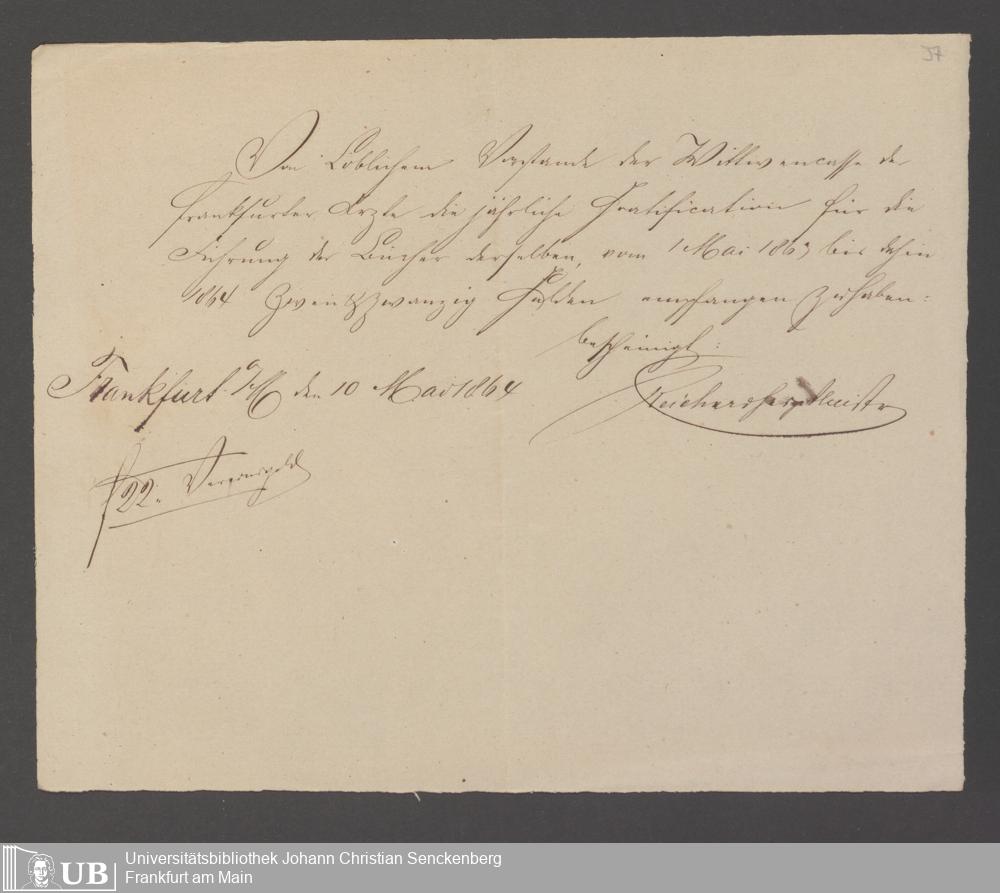 37
Von Löblichem Vorstande der Wittwencasse der
Frankfurter Ärzte die jährliche Gratification für die
Führung der Bücher derselben, vom 1 Mai 1863 bis dahin
1864 Zwei & zwanzig Gulden empfangen zu haben:
bescheinigt:
Frankfurt a/M den 10 Mai 1864
f 22.
UB
Universitätsbibliothek Johann Christian Senckenberg
Frankfurt am Main